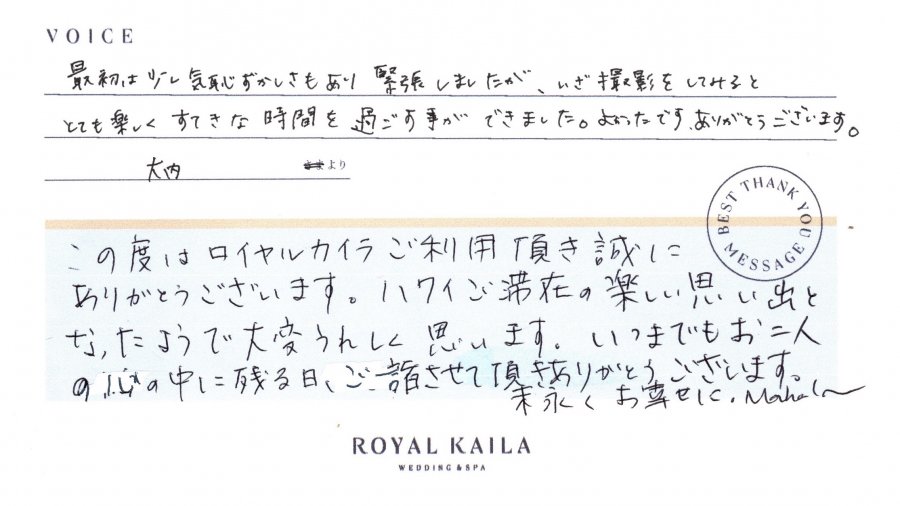 VOICE
最初は少し気恥ずかしさもあり 緊張しましたが、いざ撮影をしてみると
とても楽しく すてきな 時間を 過ごす事が できました。よかったです、ありがとうございます。
大内 さま より
BEST THANK YOU MESSAGE
この度は ロイヤルカイラ ご利用 頂き 誠に
ありがとうございます。ハワイご滞在の楽しい思い出と
なったようで大変うれしく思います。いつまでもお二人
の心の中に残る日、ご一諸させて頂きありがとうございます。
末永く お幸せに。Mahalo
ROYAL KAILA
WEDDING & SPA